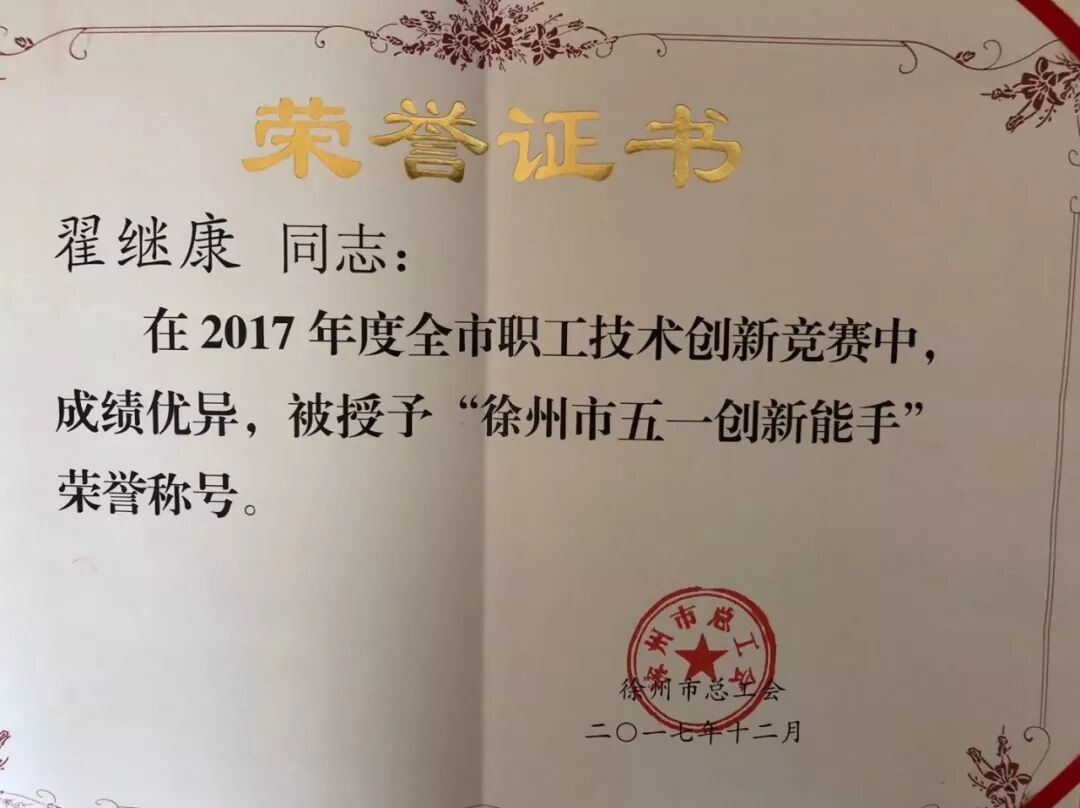 荣誉证书
翟继康 同志：
在2017年度全市职工技术创新竞赛中，
成绩优异，被授予“徐州市五一创新能手”
荣誉称号。
徐州市总工会
徐州市总工会
二〇一七年十二月